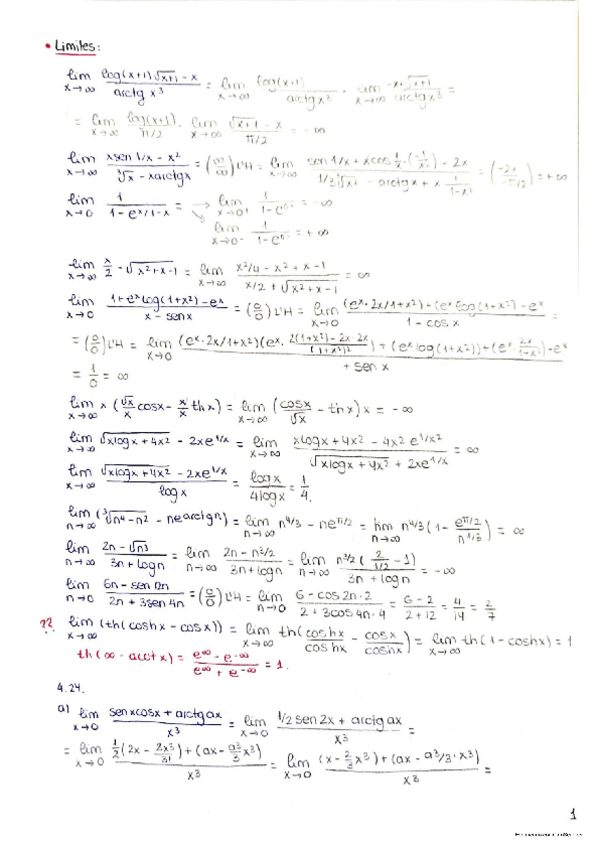 • Límites:
lim x→∞ log(x+1)√x+1 - x / arctg x³ = lim x→∞ log(x+1) / arctg x³ · lim x→∞ -x·√x+1 / arctg x³ =
= lim x→∞ log(x+1) / π/2 · lim x→∞ √x+1 - x / π/2 = -∞
lim x→∞ x sen 1/x - x² / ³√x - x arctg x = (∞/∞) L'H = lim x→∞ sen 1/x + x cos 1/x · (-1/x²) - 2x / 1/3 ³√x² - arctg x + x 1/1-x² = (-2x / -π/2) = +∞
lim x→0 1 / 1-e^x/1-x = → lim x→0⁺ 1 / 1-e^0⁺ = -∞
lim x→0⁻ 1 / 1-e^0⁻ = +∞
lim x→∞ x/2 - √x²+x-1 = lim x→∞ x²/4 - x² + x - 1 / x/2 + √x²+x-1 = ∞
lim x→0 1 + e^x log(1+x²) - e^x / x - sen x = (0/0) L'H = lim x→0 (e^x · 2x/1+x²) + (e^x log(1+x²) - e^x / 1 - cos x =
= (0/0) L'H = lim x→0 (e^x · 2x/1+x²)(e^x · 2(1+x²) - 2x · 2x / (1+x²)²) + (e^x log(1+x²)) + (e^x · 2x/1-x²) - e^x / + sen x
= 1/0 = ∞
lim x→∞ x (√x/x cos x - x/x th x) = lim x→∞ (cos x/√x - th x) x = -∞
lim x→∞ √x log x + 4x² - 2x e^1/x = lim x→∞ x log x + 4x² - 4x² e^1/x² / √x log x + 4x² + 2x e^1/x = ∞
lim x→∞ √x log x + 4x² - 2x e^1/x / log x = log x / 4 log x = 1/4.
lim n→∞ (³√n⁴-n² - n e^arctg n) = lim n→∞ n^4/3 - n e^π/2 = lim n→∞ n^4/3 (1 - e^π/2 / n^1/3) = ∞
lim n→∞ 2n - √n³ / 3n + log n = lim n→∞ 2n - n^3/2 / 3n + log n = lim n→∞ n^3/2 (2 / 1/2 - 1) / 3n + log n = -∞
lim n→0 6n - sen 2n / 2n + 3 sen 4n = (0/0) L'H = lim n→0 6 - cos 2n · 2 / 2 + 3 cos 4n · 4 = 6-2 / 2+12 = 4/14 = 2/7
?? lim x→∞ (th(cosh x - cos x)) = lim x→∞ th(cosh x / cosh x - cos x / cosh x) = lim x→∞ th(1 - cosh x) = 1
th(∞ - acot x) = e^∞ - e^-∞ / e^∞ + e^-∞ = 1.
4.24.
a) lim x→0 sen x cos x + arctg ax / x³ = lim x→0 1/2 sen 2x + arctg ax / x³ =
= lim x→0 1/2 (2x - 2x³/3!) + (ax - a³/3 x³) / x³ = lim x→0 (x - 2/3 x³) + (ax - a³/3 · x³) / x³ =
1